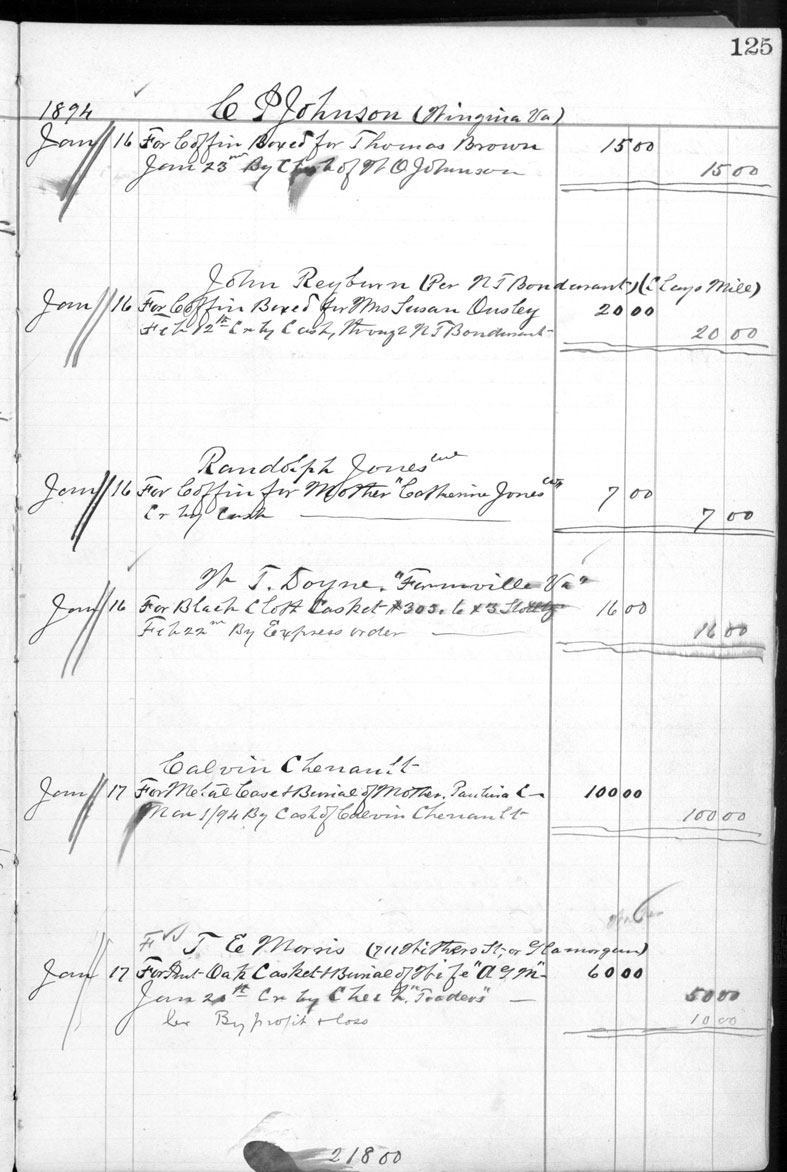 125
1894 C P Johnson (Wingina Va)
Jan 16 For Coffin Boxed for Thomas Brown 15 00
Jan 23rd By Check of W O Johnson 15 00
John Reyburn (Per N T Bondurant) (Clays Mill)
Jan 16 For Coffin Boxed for Mrs Susan Ousley 20 00
Feb 12th Cr by Cash, through N T Bondurant 20 00
Randolph Jones
Jan 16 For Coffin for Mother "Catherine Jones 7 00
Cr by Cash 7 00
W T. Doyne. "Farmville Va"
Jan 16 For Black Cloth Casket #303. 6 x 16 00
Feb 22nd By Express order 16 00
Calvin Chenault
Jan 17 For Metal Case & Burial of Mother, 100 00
Mar 1/94 By Cash of Calvin Chenault 100 00
T E Morris (711 Withers St, or Glamorgan)
Jan 17 For Oak Casket & Burial of Wife "A G M" 60 00
Jan Cr by Check, "Traders" 50 00
By profit & loss 10 00
218 00